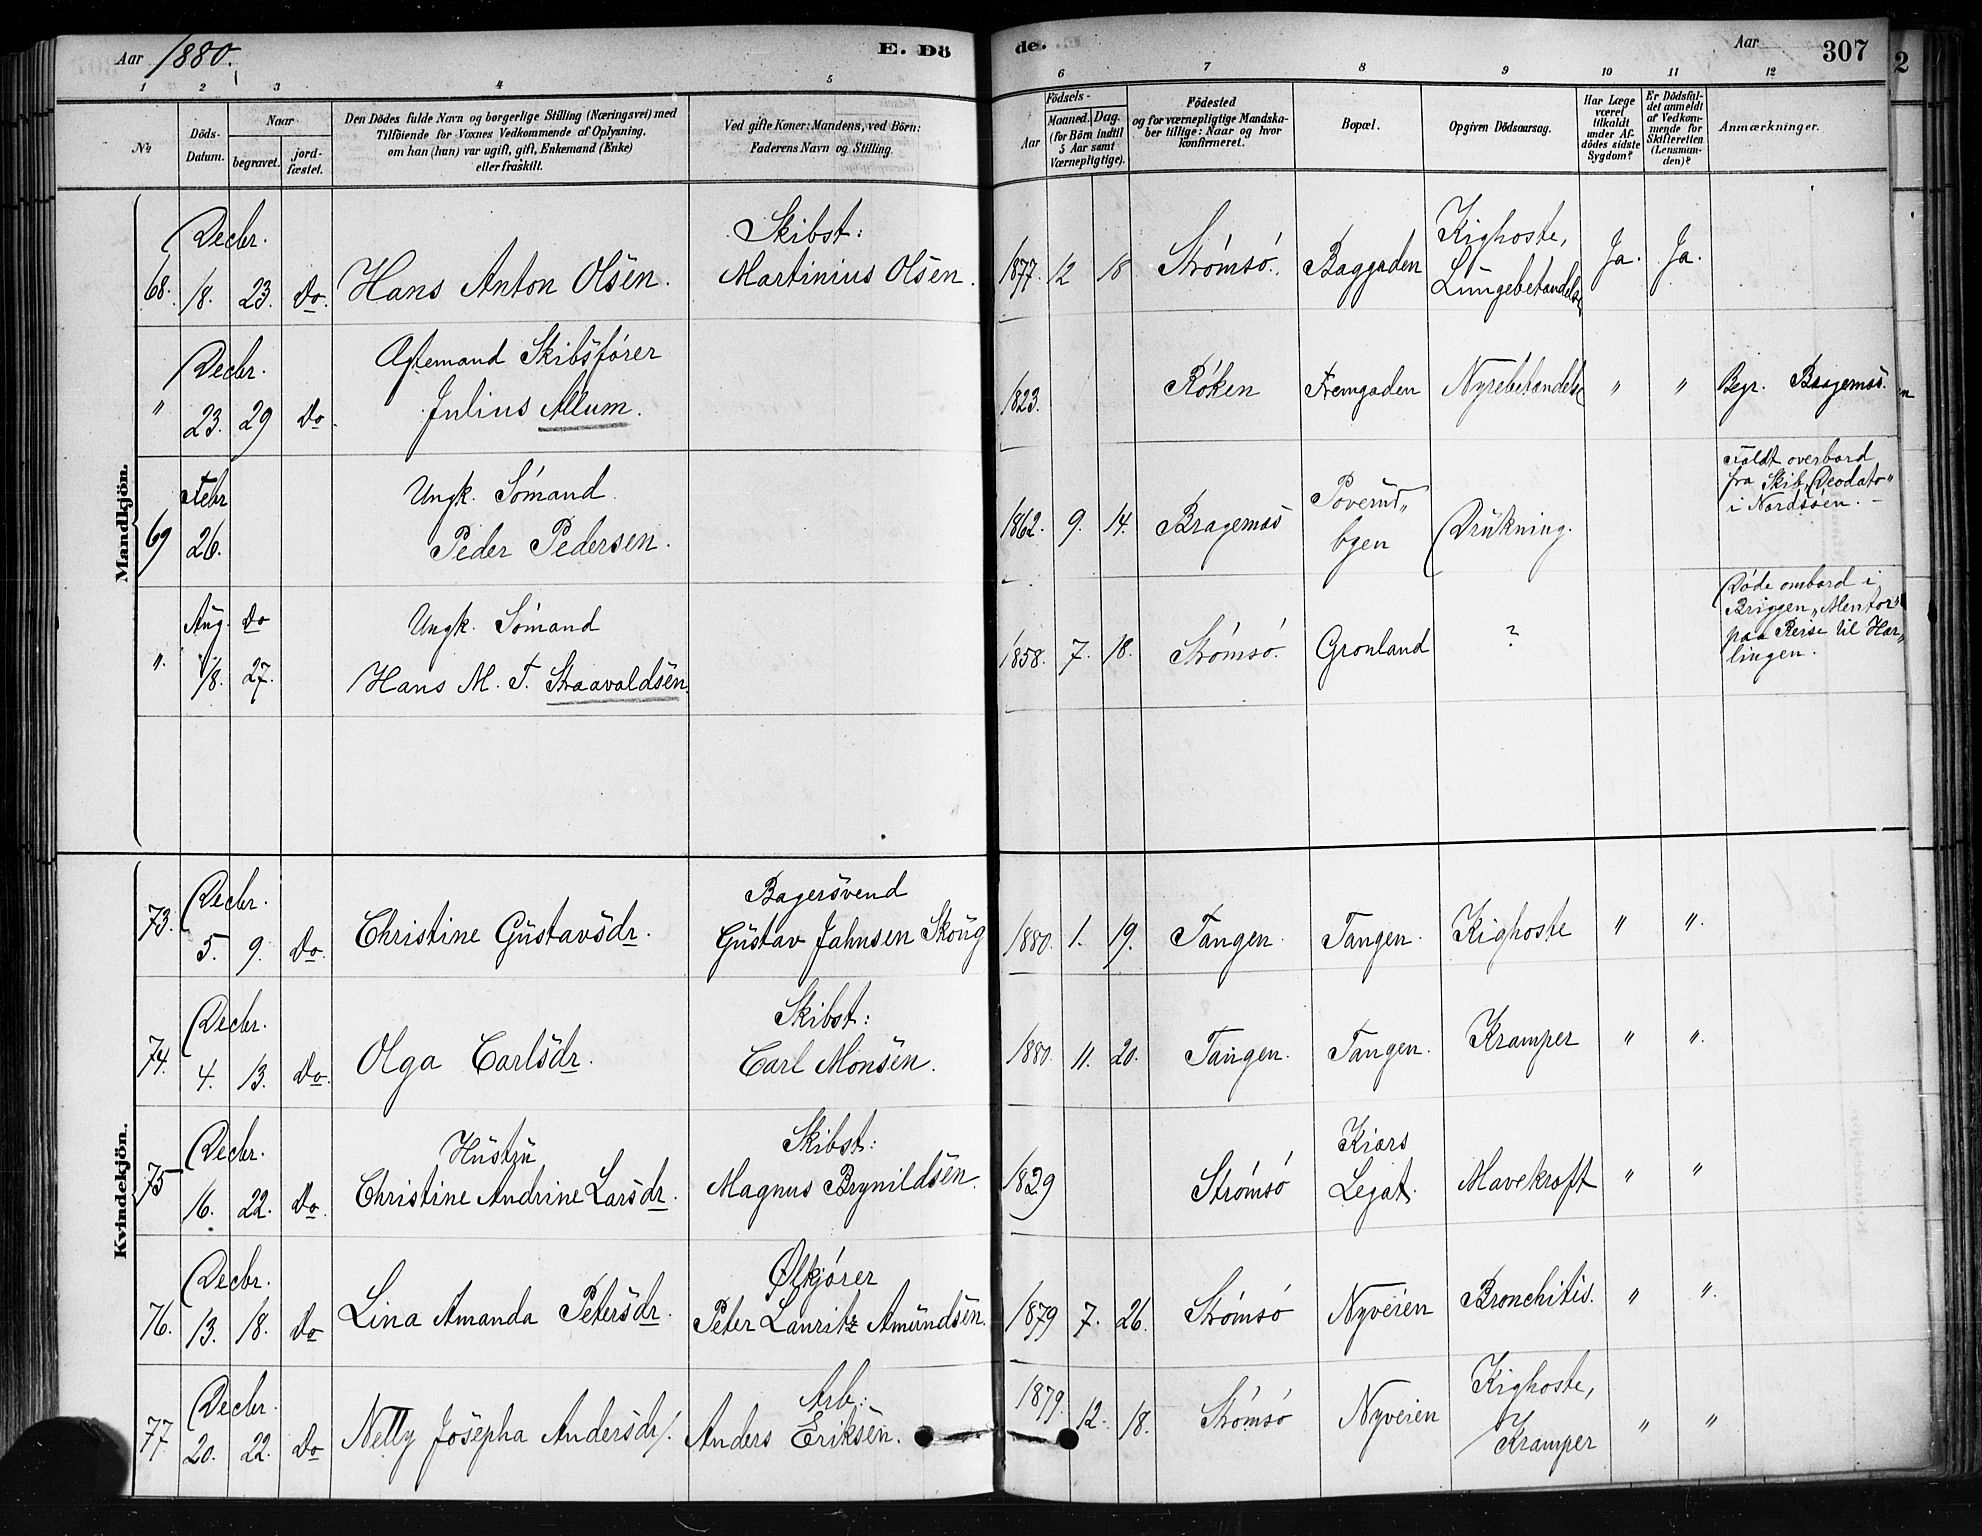 Aar 1880.
E. Dö
de.
Aar
307
2
1 2 3 4 5 6 7 8 9 10 11 12
No
Döds-Datum.
Naar
begravet.
jordfæstet.
Den Dödes fulde Navn og borgerlige Stilling (Næringsvei) med
Tilföiende for Voxnes Vedkommende af Oplysning,
om han (hun) var ugift, gift, Enkemand (Enke)
eller fraskilt.
Ved gifte Koner: Mandens, ved Börn:
Faderens Navn og Stilling.
Födsels-
Aar
Maaned. Dag.
(for Börn indtil
5 Aar samt
Værnepligtige).
Födested
og for værnepligtige Mandska-
ber tillige: Naar og hvor
konfirmeret.
Bopæl.
Opgiven Dödsaarsag.
Har Læge
været
tilkaldt
under Af-
dödes sidste
Sygdom?
Er Dödsfal-
det anmeldt
af Vedkom-
mende for
Skifteretten
(Lensman-
den)?
Anmærkninger.
Mandkjön.
68. Decbr. 18. 23. Do. Hans Anton Olsen. Skibst: Martinius Olsen. 1877. 12 18 Strømsø. Baggaden Kighoste, Lungebetændelse Ja. Ja.
" Decbr. 23. 29 Do. Agtemand Skibsfører Julius Allum. 1823. Røken Fremgaden Nyrebetændelse " " Begr. Bragernæs.
69 Febr 26. Ungk. Sømand. Peder Pedersen. 1862. 9. 14. Bragernæs bgen Drukning. Faldt overbord fra Skib „Deodato" i Nordsøen. –
". Aug. 18. Do 27. Ungk. Sømand Hans M. T. Straavaldsen. 1858. 7. 18. Strømsø. Grønland ? Døde ombord i Briggen „Mentor" paa Reise til Har„lingen.
Kvindekjön.
73. Decbr. 5. 9. Do. Christine Gustavsdr. Bagersvend Gustav Jahnsen Skoug 1880. 1. 19. Tangen. Tangen. Kighoste " ".
74. Decbr. 4. 13. Do. Olga Carlsdr. Skibst: Carl Monsen. 1880. 11. 20. Tangen. Tangen. Kramper " ".
75 Decbr. 16. 22. Do. Hustru Christine Andrine Larsdr. Skibst: Magnus Brynildsen. 1829 Strømsø Kiærs Legat. Mavekræft " "
76. Decbr. 13. 18. Do Lina Amanda Petersdr. Ølkjører Peter Lauritz Amundsen. 1879 7. 26. Strømsø Nyveien Bronchitis. " ".
77. Decbr. 20. 22. Do Nelly Josepha Andersdr. Arb: Anders Eriksen. 1879. 12. 18. Strømsø Nyveien Kighoste, Kramper " "